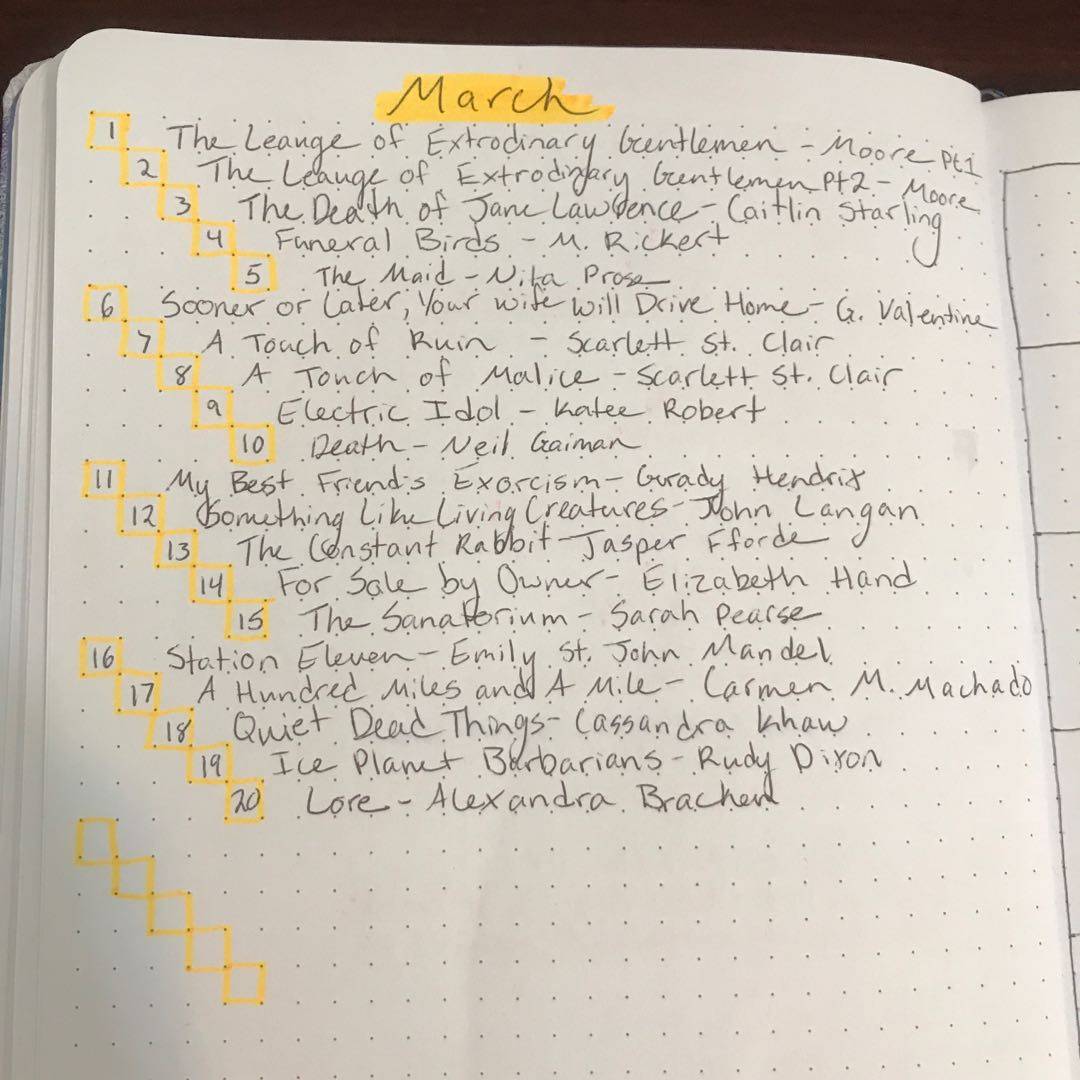 March
1 The Leauge of Extrodinary Gentlemen - Moore pt1
2 The Leauge of Extrodinary Gentlemen pt2 - Moore
3 The Death of Jane Lawrence - Caitlin Starling
4 Funeral Birds - M. Rickert
5 The Maid - Nita Prose
6 Sooner or Later, Your wife will Drive Home - G. Valentine
7 A Touch of Ruin - Scarlett St. Clair
8 A Touch of Malice - Scarlett St. Clair
9 Electric Idol - Katee Robert
10 Death - Neil Gaiman
11 My Best Friend's Exorcism - Grady Hendrix
12 Something Like Living Creatures - John Langan
13 The Constant Rabbit - Jasper Fforde
14 For Sale by Owner - Elizabeth Hand
15 The Sanatorium - Sarah Pearse
16 Station Eleven - Emily St. John Mandel
17 A Hundred Miles and A Mile - Carmen M. Machado
18 Quiet Dead Things - Cassandra Khaw
19 Ice Planet Barbarians - Rudy Dixon
20 Lore - Alexandra Bracken